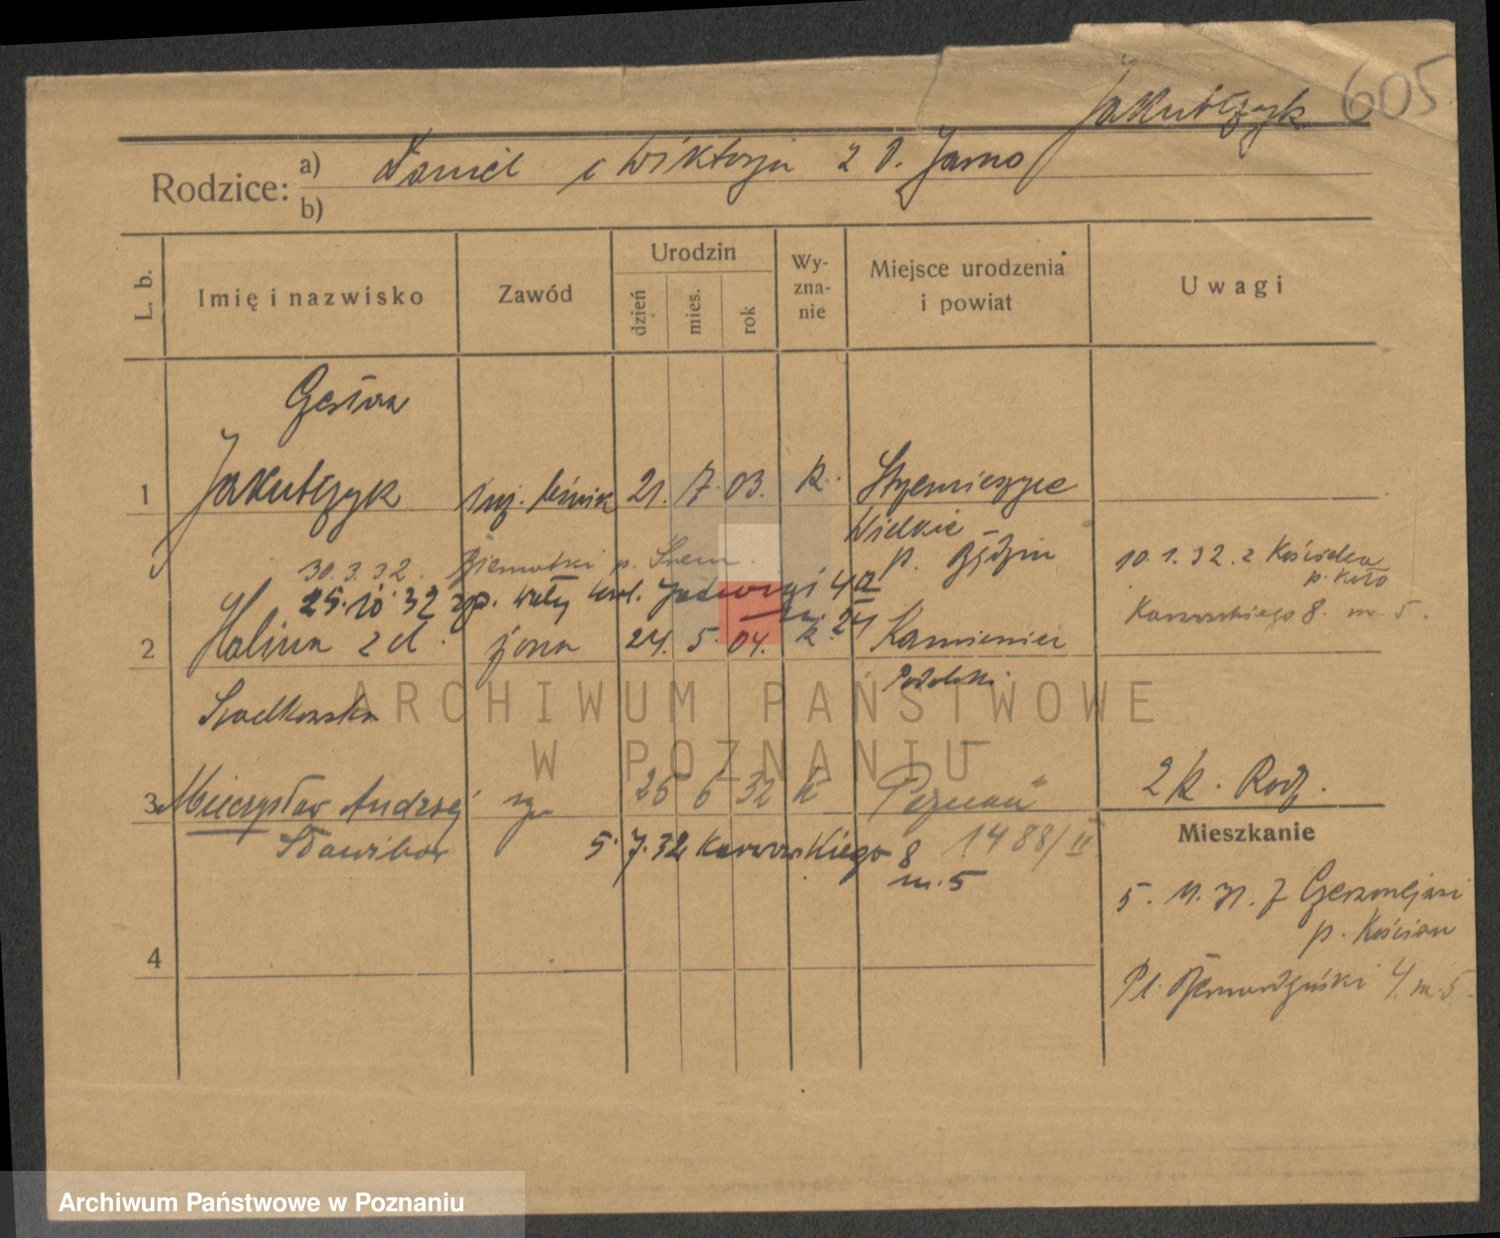 Jakubczyk 605
Rodzice: a) Daniel i Wiktorja z d. Jarno
b)
L. b. Imię i nazwisko Zawód Urodzin dzień mies. rok Wyznanie Miejsce urodzenia i powiat Uwagi
Czesław
1 Jakubczyk inż. leśnik 21. 7. 03. k. Strzemieszyce
Wielkie
p. Będzin
30.3.32. p. Śrem.
10.1.32. z Kościelca
p. Koło
25.10.32 Wały Król. Jadwigi 4a
m. 24
Karwowskiego 8. m. 5.
2 Halina z d. żona 24. 5. 04. k. Kamieniec
Podolski
Sadkowska
3 Mieczysław Andrzej 26 6 32 k Poznań
Sławibor
5.7.32 Karwowskiego 8
m. 5
1488/II
2 k. Rodz.
Mieszkanie
5. 11. 31. z
p. Kościan
4
Pl. Bernardyński 4. m. 5.
ARCHIWUM PAŃSTWOWE
W POZNANIU
Archiwum Państwowe w Poznaniu